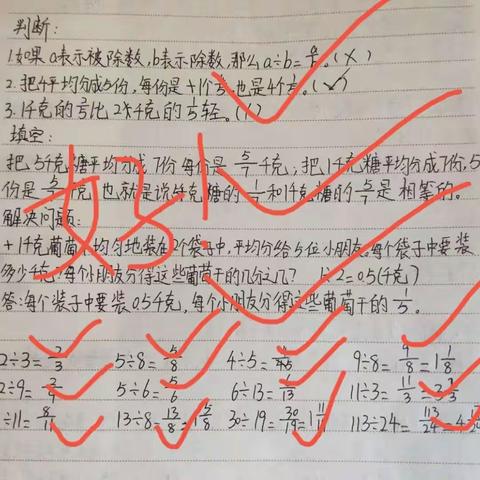 判断:
1.如果a表示被除数,b表示除数,那么a÷b=a/b。(×)
2.把4平均分成5份,每份是 个1/5,也是4个1/5。(✓)
3.1千克的 比2千克的1/5轻。( )
填空:
把5千克糖平均分成7份每份是5/7千克,把1千克糖平均分成7份,5
份是5/7千克 也就是说5千克糖的1/7和1千克糖的5/7是相等的。
解决问题:
1千克葡萄 均匀地装在2个袋子中,平均分给5位小朋友。每个袋子中要装
多少千克?每个小朋友分得这些葡萄干的几分之几? 1÷2=0.5(千克)
答:每个袋子中要装0.5千克,每个小朋友分得这些葡萄干的1/5。
好
2÷3=2/3 5÷8=5/8 4÷5=4/5 9÷8=9/8=1 1/8
2÷9=2/9 5÷6=5/6 6÷13=6/13 11÷3=11/3=3 2/3
÷11=8/11 13÷8=13/8=1 5/8 30÷19=30/19=1 11/19 113÷24=113/24=4